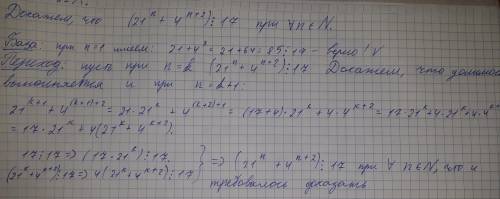 Докажем, что (21ⁿ + 4ⁿ⁺²) ⋮ 17 при ∀ n∈N.
База: при n=1 имеем: 21+4³ = 21+64 = 85 ⋮ 17 – верно! V
Переход: пусть при n=k (21ᵏ + 4ᵏ⁺²) ⋮ 17 Докажем, что
выполняется и при n=k+1:
21ᵏ⁺¹ + 4⁽ᵏ⁺¹⁾⁺² = 21·21ᵏ + 4⁽ᵏ⁺²⁾⁺¹ = (17+4)·21ᵏ + 4·4ᵏ⁺² = 17·21ᵏ + 4·21ᵏ + 4·4ᵏ⁺²
= 17·21ᵏ + 4(21ᵏ + 4ᵏ⁺²).
17⋮17 => (17·21ᵏ) ⋮ 17 } => (21ⁿ + 4ⁿ⁺²) ⋮ 17 при ∀ n∈N, что и
(21ᵏ+4ᵏ⁺²) ⋮ 17 => 4(21ᵏ + 4ᵏ⁺²) ⋮ 17 требовалось доказать